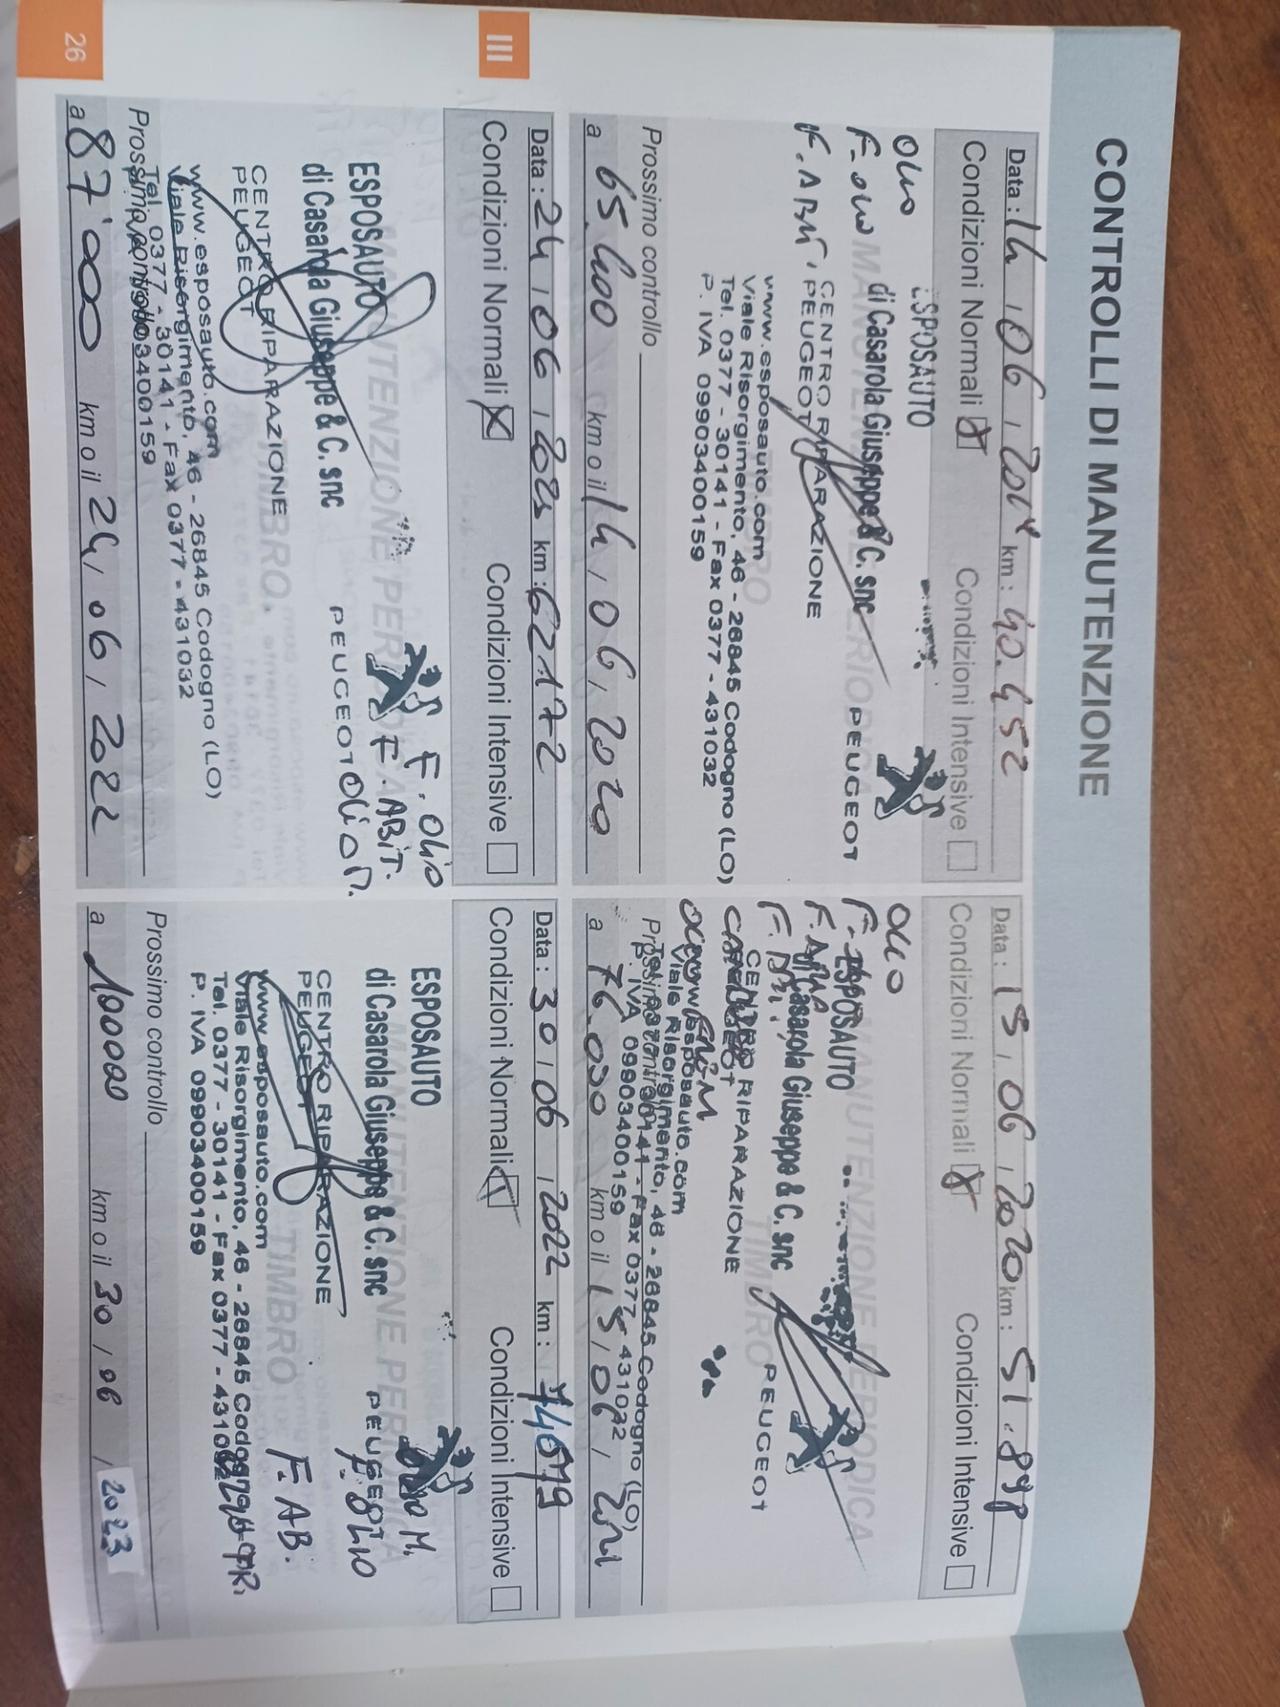 CONTROLLI DI MANUTENZIONE
Data: 14, 06, 2019 km: 40.452
Condizioni Normali Condizioni Intensive
OLIO
F. OLIO
F. ABIT.
ESPOSAUTO
di Casarola Giuseppe & C. snc
PEUGEOT
CENTRO RIPARAZIONE
PEUGEOT
www.esposauto.com
Viale Risorgimento, 46 - 26845 Codogno (LO)
Tel. 0377 - 30141 - Fax 0377 - 431032
P. IVA 09903400159
Prossimo controllo
a 65.400 km o il 14, 06, 2020
Data: 15, 06, 2020 km: 51.898
Condizioni Normali Condizioni Intensive
OLIO
ESPOSAUTO
di Casarola Giuseppe & C. snc
PEUGEOT
CENTRO RIPARAZIONE
Viale Risorgimento, 46 - 26845 Codogno (LO)
P. IVA 09903400159
a 76.000 km o il 15, 06, 2021
III
Data: 24, 06, 2021 km: 62172
Condizioni Normali Condizioni Intensive
F. Olio
F. ABIT.
Olio M.
ESPOSAUTO
di Casarola Giuseppe & C. snc
PEUGEOT
CENTRO RIPARAZIONE
PEUGEOT
www.esposauto.com
Viale Risorgimento, 46 - 26845 Codogno (LO)
Tel. 0377 - 30141 - Fax 0377 - 431032
Prossimo controllo
a 87'000 km o il 24, 06, 2022
Data: 30, 06, 2022 km: 74679
Condizioni Normali Condizioni Intensive
ESPOSAUTO
di Casarola Giuseppe & C. snc
PEUGEOT
F. OLIO
F. AB.
CENTRO RIPARAZIONE
PEUGEOT
www.esposauto.com
Viale Risorgimento, 46 - 26845 Codogno
Tel. 0377 - 30141 - Fax 0377 - 431032
P. IVA 09903400159
Prossimo controllo
a 100000 km o il 30, 06, 2023
26